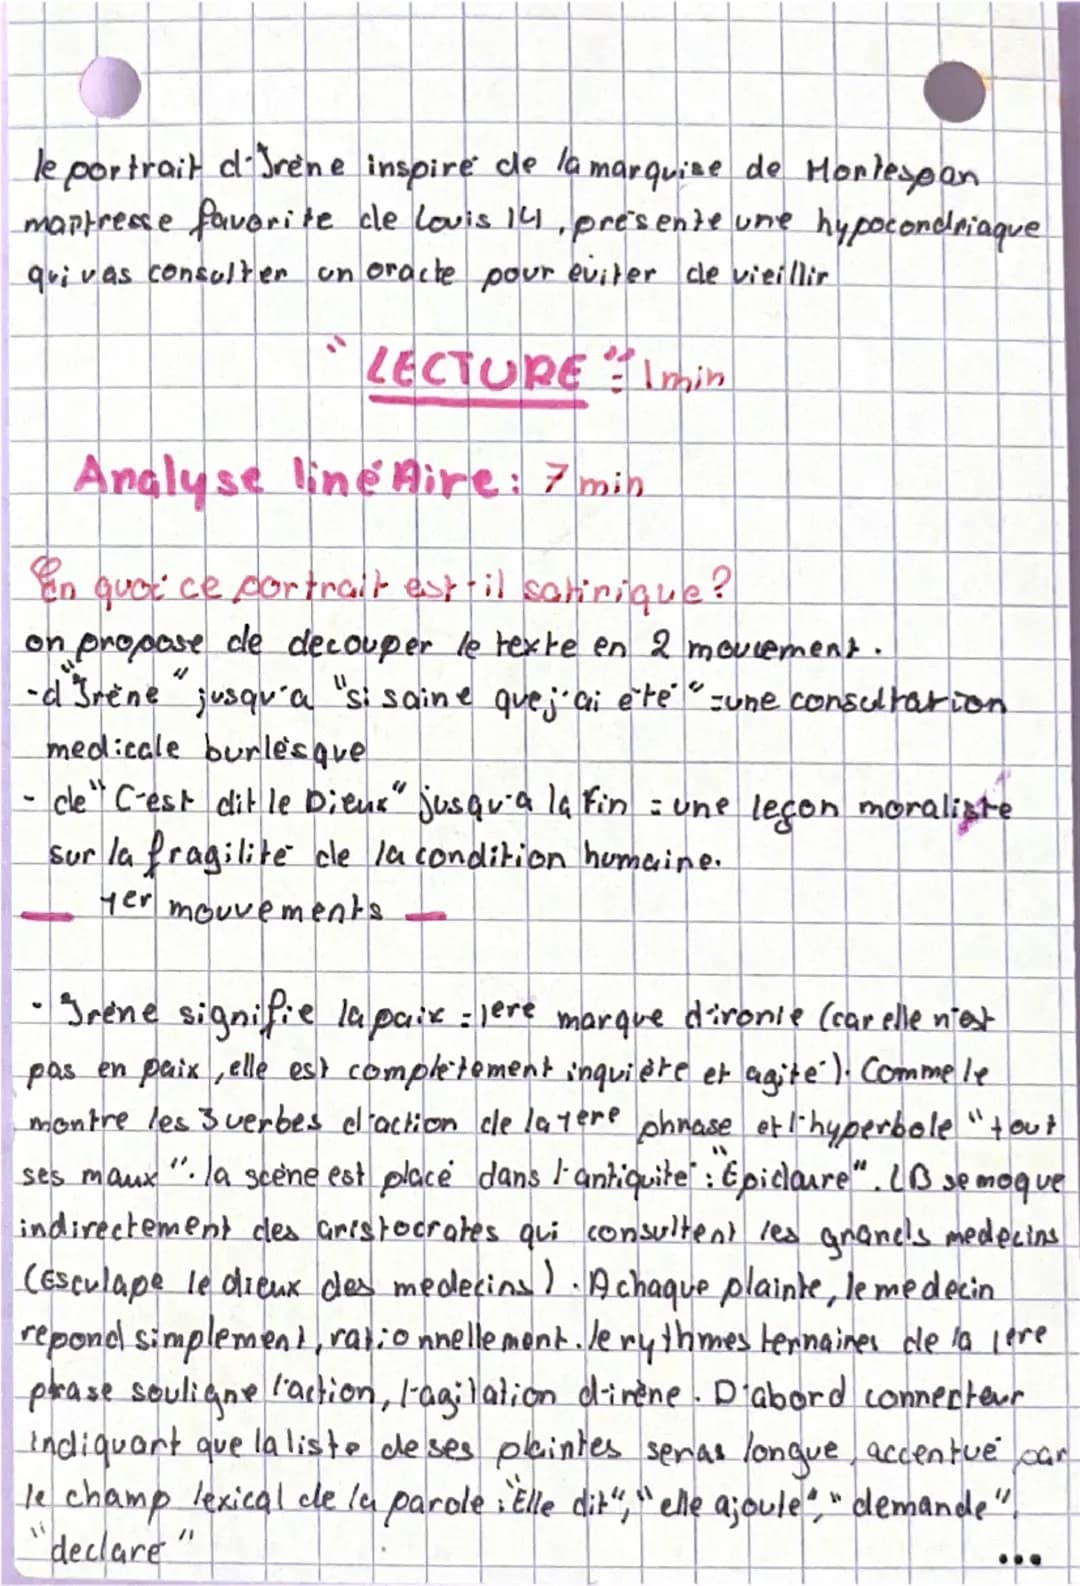 le portrait d'Irène inspiré de la marquise de Montespan
maîtresse favorite de Louis 14, présente une hypocondriaque
qui vas consulter un oracte pour éviter de vieillir
"LECTURE" = 1min
Analyse linéAire : 7min
En quoi ce portrait est-il satirique ?
on propose de decouper le texte en 2 mouvement.
-d"Irène" jusqu'a "si saine que j'ai été" = une consultation
medicale burlésque
- de "C'est dit le Dieux" jusqu'a la fin = une leçon moraliste
sur la fragilité de la condition humaine.
1er mouvements
- Irène signifie la paix = 1ere marque d'ironie (car elle n'est
pas en paix, elle est complètement inquiète et agité). Comme le
montre les 3 verbes d'action de la 1ere phrase et l'hyperbole "tout
ses maux". la scène est placé dans l'antiquité : "Epidaure". LB se moque
indirectement des aristocrates qui consultent les grands medecins
(Esculape le dieux des medecins). A chaque plainte, le medecin
repond simplement, rationnellement. le rythmes ternaires de la 1ere
phase souligne l'action, l'agitation d'irène. D'abord connecteur
indiquant que la liste de ses plaintes seras longue, accentué par
le champ lexical de la parole : "Elle dit", "elle ajoute", "demande",
"declare"
...